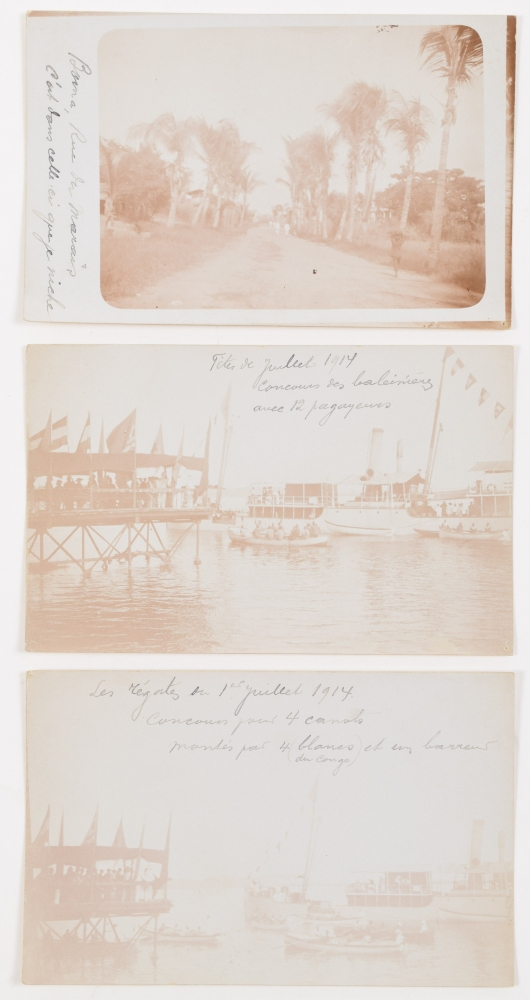 Boma, Rue du Marais
C'est dans celle-ci que je niche
Fêtes de Juillet 1914
Concours des baleinières
avec 12 pagayeurs
Les régates du 1er Juillet 1914.
Concours pour 4 canots
montés par 4 (blancs) et un barreur
(du Congo)